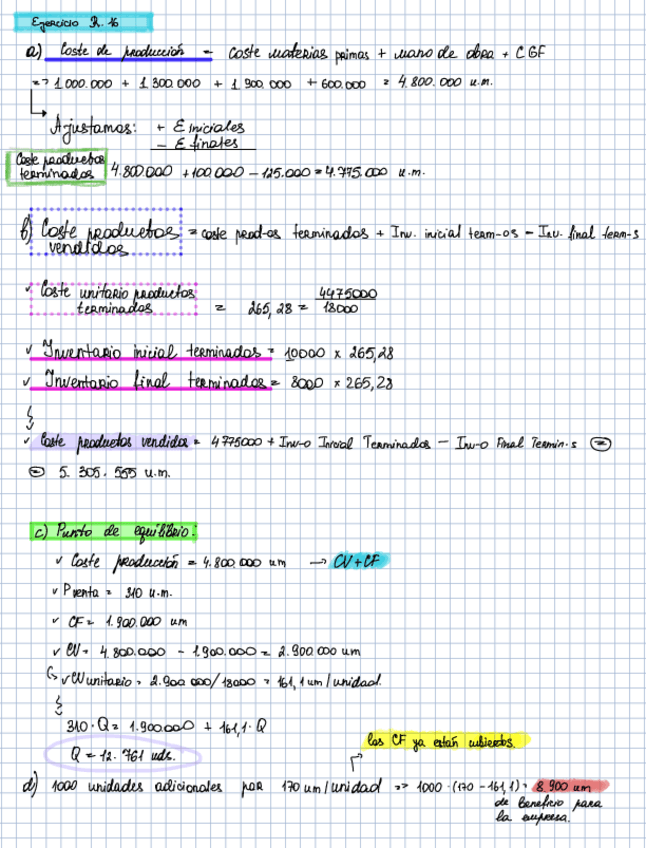 Ejercicio R.16
a) Coste de producción = Coste Materias primas + Mano de obra + CGF
=> 1000.000 + 1.300.000 + 1.900.000 + 600.000 = 4.800.000 u.m.
Ajustamos: + E iniciales
− E finales
Coste productos terminados 4.800.000 + 100.000 − 125.000 = 4.775.000 u.m.
b) Coste productos vendidos = coste prod-os terminados + Inv. inicial term-os − Inv. final term-s
✓ Coste unitario productos terminados = 265,28 = 4475000 / 18000
✓ Inventario inicial terminados = 10000 x 265,28
✓ Inventario final terminados = 8000 x 265,28
✓ Coste productos vendidos = 4775000 + Inv-o Inicial Terminados − Inv-o Final Termin-s =
= 5.305.555 u.m.
c) Punto de equilibrio:
✓ Coste producción = 4.800.000 um → CV + CF
✓ P venta = 310 u.m.
✓ CF = 1.900.000 um
✓ CV = 4.800.000 − 1.900.000 = 2.900.000 um
↳ ✓ CV unitario = 2.900.000/18000 = 161,1 um/unidad.
310·Q = 1.900.000 + 161,1·Q
Q = 12.761 uds.
los CF ya están cubiertos.
d) 1000 unidades adicionales por 170 um/unidad => 1000·(170 − 161,1) = 8.900 um
de beneficio para
la empresa.